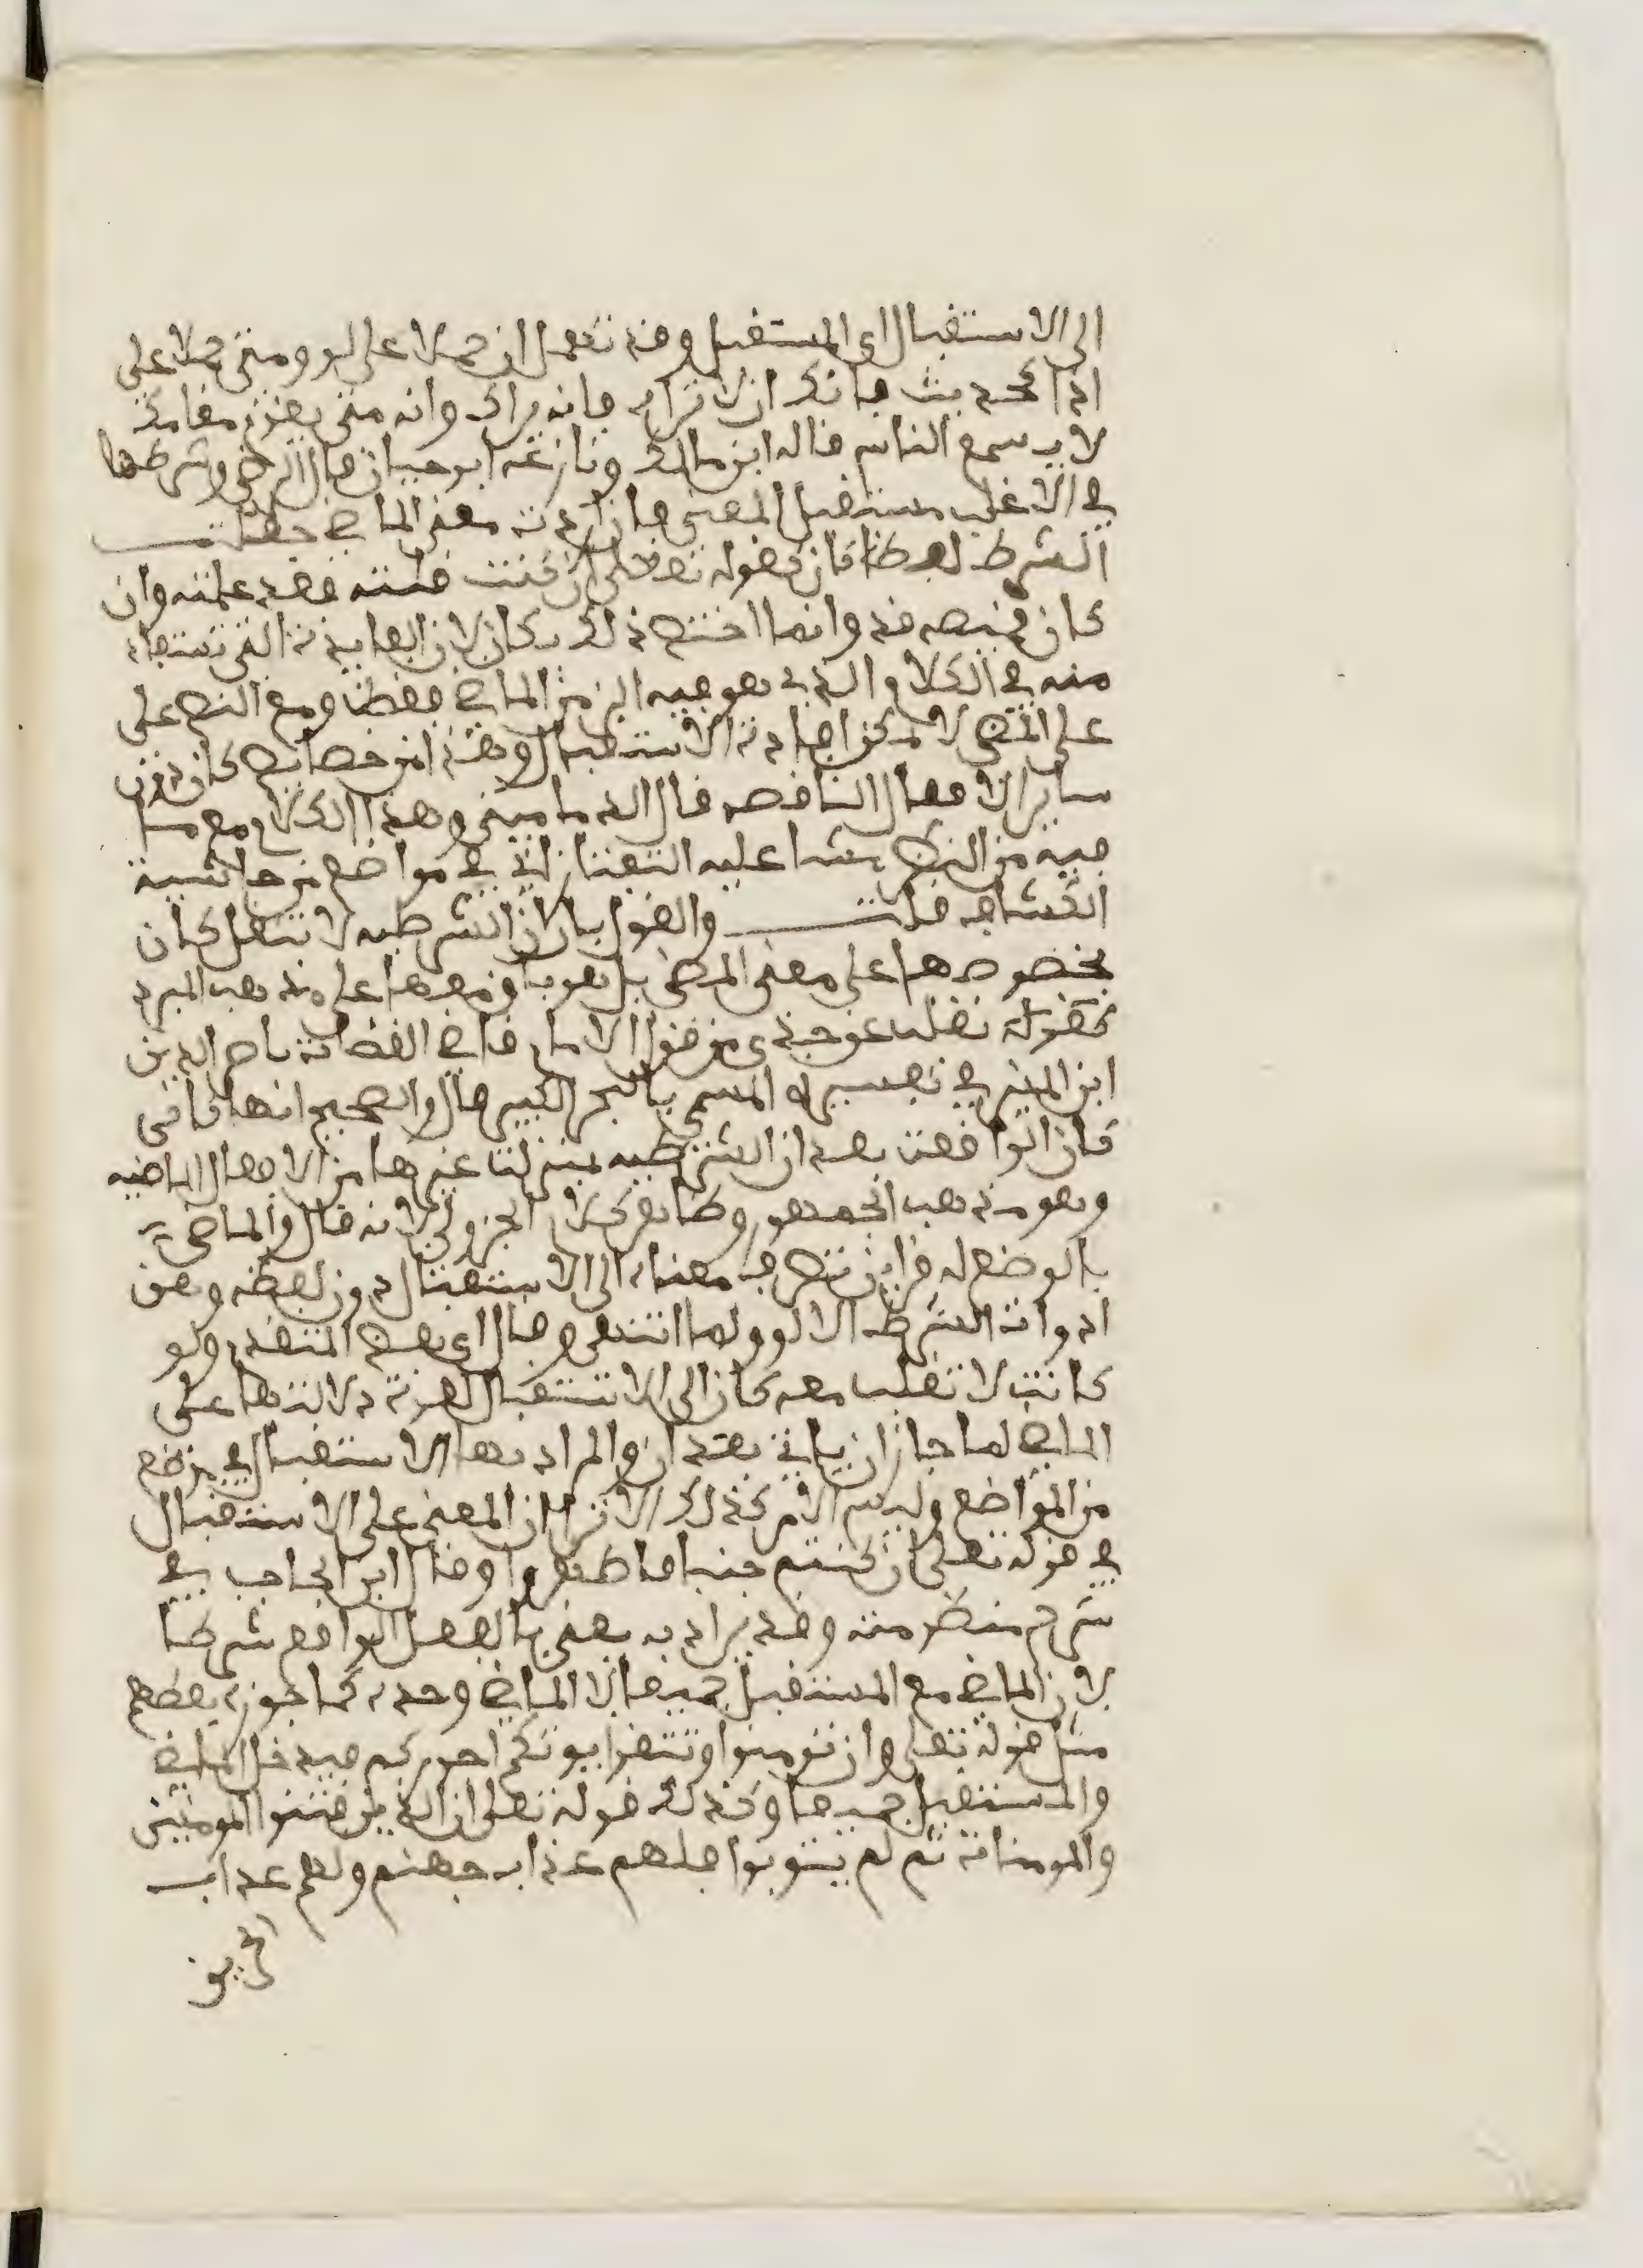 الى الاستقبال اى المستقبل وقد تهمل ان حملا على لو ومتى حملا على
اذا كحديث فانك ان لا تراه فانه يراك وانه متى يقوم مقامك
لا يسمع الناس قاله ابن مالك ونازعه ابو حيان قال الرضى وشرطها
في الاغلب مستقبل المعنى فان اردت معنى الماضي جعلت
الشرط لفظ كان كقوله تعلى ان كنت قلته فقد علمته وان
كان قميصه قد وانما اختص ذلك بكان لان الفايدة التي تستفاد
منه في الكلام الذي هو فيه الزمن الماضي فقط ومع النص على
على المضي لا يمكن افادة الاستقبال وهذا من خصايص كان دون
ساير الافعال الناقصه قال الدماميني وهذا الكلام مع ما
فيه من النص مشا عليه التفتازاني في مواضع من حاشية
الكشاف قلت والقول بان ان الشرطيه لا تنقل كان
بخصوصها على معنى المضي بل هو باق معها على مذهب المبرد
كقوله نقله عوجدى من قول الامام قاضي القضاة ناصر الدين
ابن المنير في تفسيره المسمى بالبحر الكبير قال والصحيح انها تاتى
كان الواقعة بعد ان الشرطيه بمنزلت غيرها من الافعال الماضيه
وهو مذهب الجمهور وظاهر كلام الجزولي لانه قال والماضى
بالوضع له قراين تصرف معناه الى الاستقبال دون لفظه وهى
ادوات الشرط الا لو ولما انتهى وقال اى بعض المتقدم ولو
كانت لا تقلب معه كان الى الاستقبال لقوة دلالتها على
الماضي لما جاز ان ياتي بعد ان والمراد بها الاستقبال في موضع
من المواضع وليس الامر كذلك الا ترا ان المعنى على الاستقبال
في قوله تعلى ان كنتم جنبا فاطهروا وقال ابن الحاجب في
شرح منظومته وقد يراد به يعنى بالفعل الواقع شرطا
لان الماضي مع المستقبل جميعا لا الماضي وحده كما جوزه بعضهم
مثل قوله تعلى وان تومنوا وتتقوا يوتكم اجوركم فيدخل الماضي
والمستقبل جميعا وكذلك قوله تعلى ان الذين فتنوا المومنين
والمومنات ثم لم يتوبوا فلهم عذاب جهنم ولهم عذاب